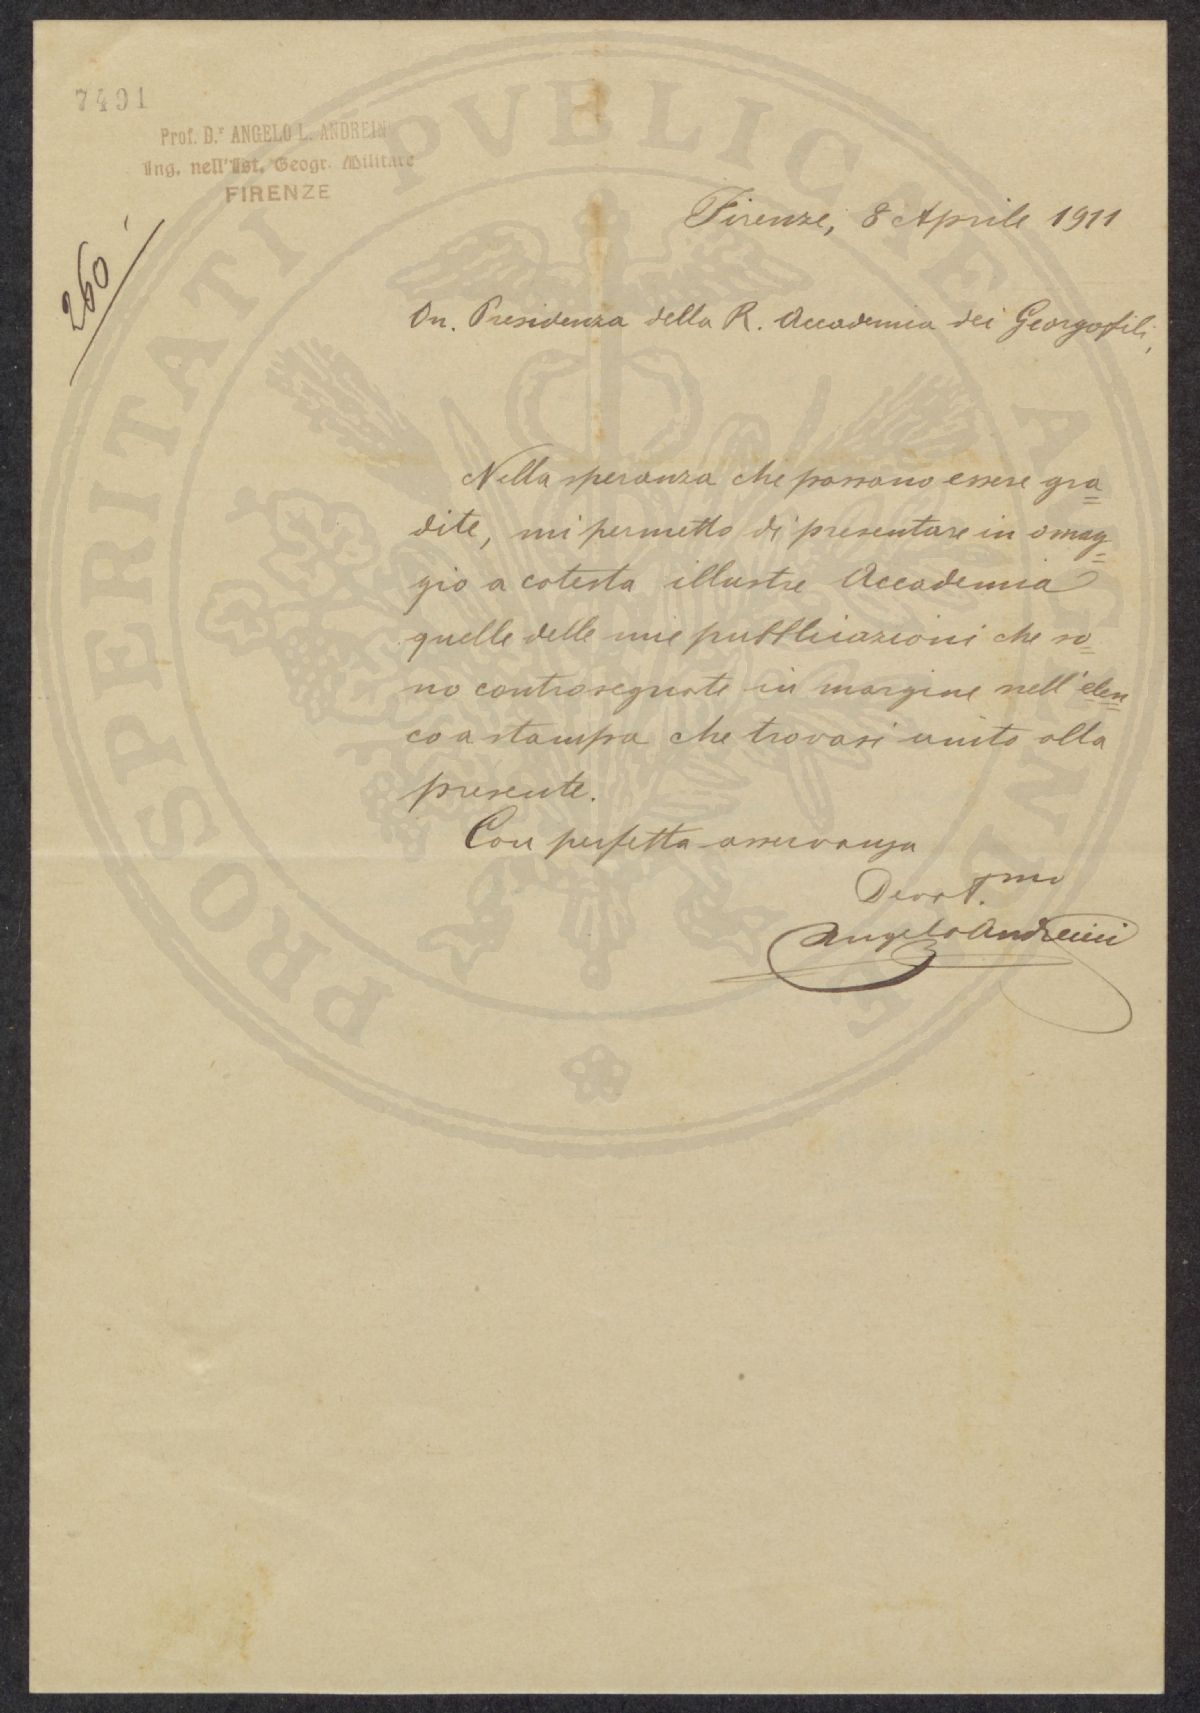 7491
Prof. D.r ANGELO L. ANDREINI
Ing. nell'Ist. Geogr. Militare
FIRENZE
260
Firenze, 8 Aprile 1911
On. Presidenza della R. Accademia dei Georgofili,
Nella speranza che possano essere gra=
dite, mi permetto di presentare in omag=
gio a cotesta illustre Accademia
quelle delle mie pubblicazioni che so=
no controsegnate in margine nell'elen=
co a stampa che trovasi unito alla
presente.
Con perfetta osservanza
Devot.mo
Angelo Andreini
PROSPERITATI PVBLICAE AVGENDAE